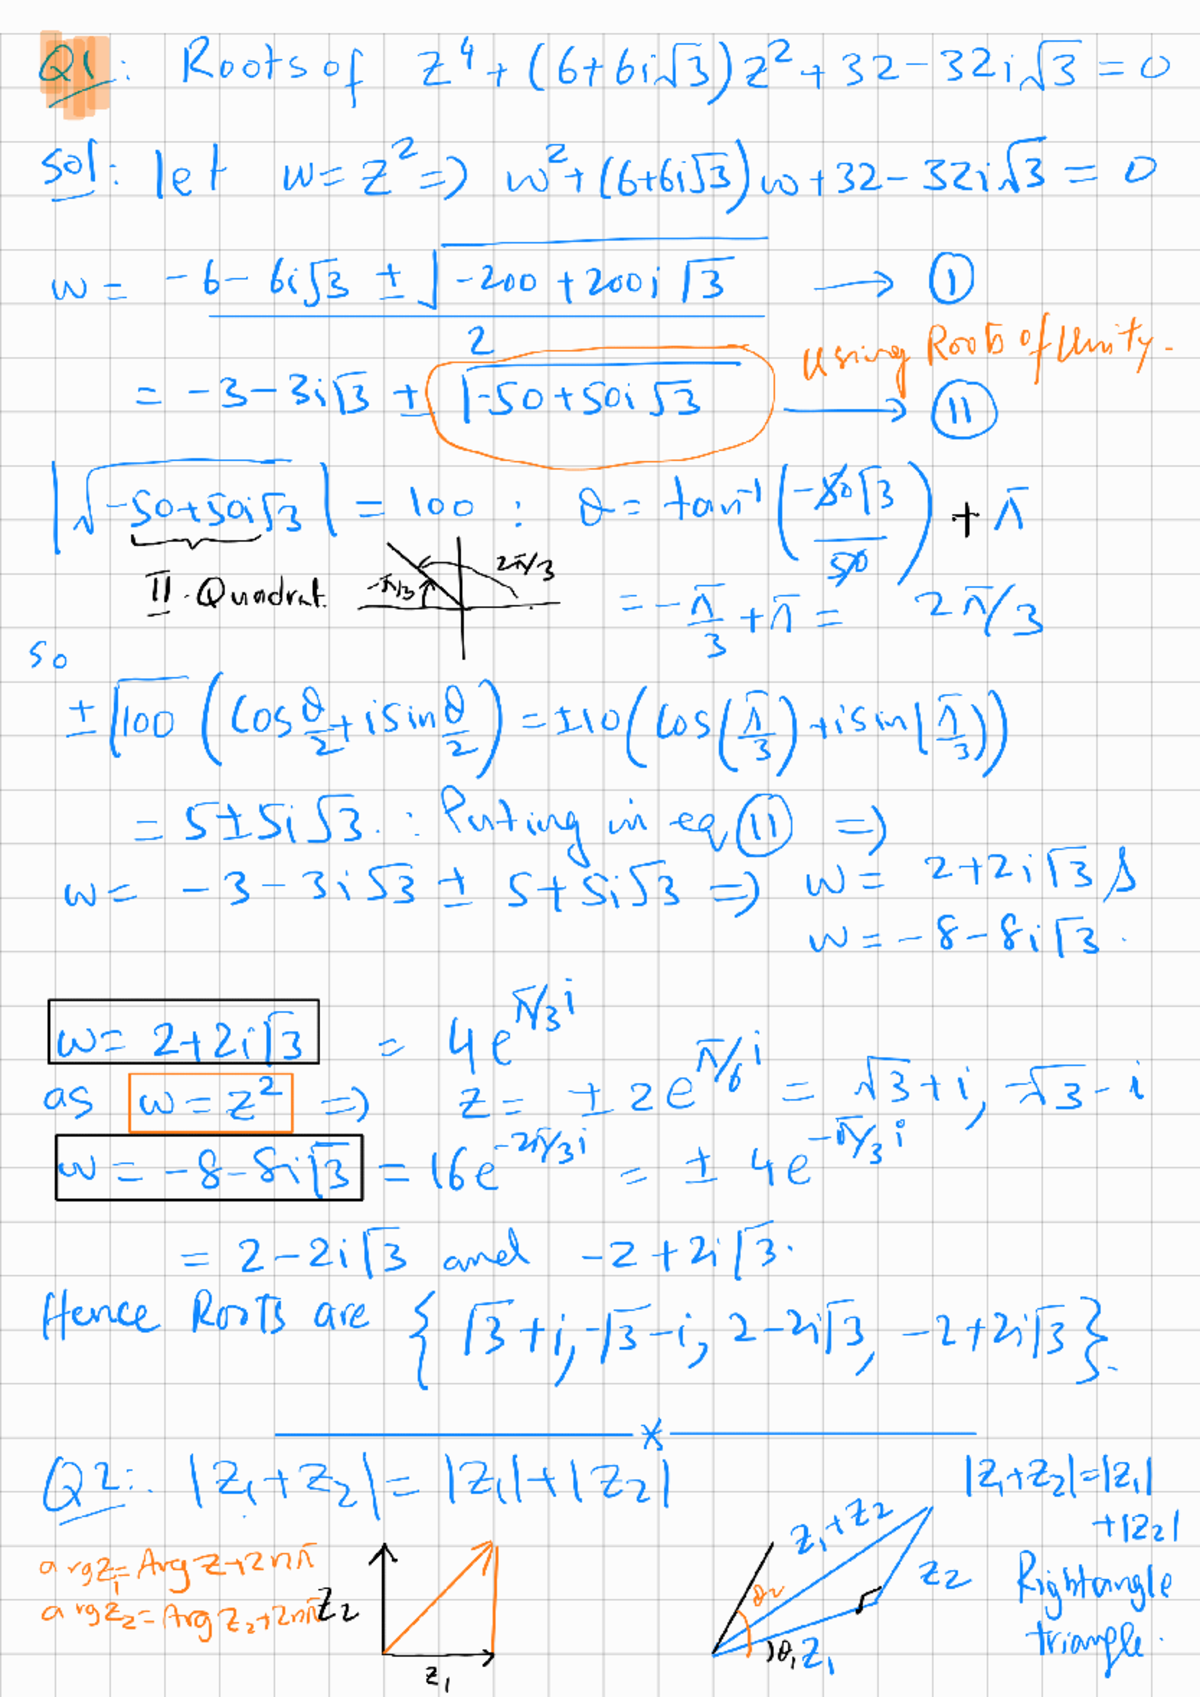 Q1: Roots of z⁴+(6+6i√3)z²+32-32i√3=0
Sol: let w=z² => w²+(6+6i√3)w+32-32i√3=0
w= (-6-6i√3 ± √(-200+200i√3))/2 → (I)
using Roots of Unity.
= -3-3i√3 ± √(-50+50i√3) → (II)
|√(-50+50i√3)| = 100 : θ= tan⁻¹(-50√3/50) + π
II. Quadrat. -π/3 2π/3
= -π/3 + π = 2π/3
so
±√100 (Cos θ/2 + i Sin θ/2) = ±10(Cos(π/3)+i sin(π/3))
= 5±5i√3. : Putting in eq (II) =>
w= -3-3i√3 ± 5+5i√3 => w= 2+2i√3 &
w=-8-8i√3.
w= 2+2i√3 = 4e^(π/3 i)
as w=z² => z= ±2e^(π/6 i) = √3+i, -√3-i
w=-8-8i√3 = 16e^(-2π/3 i) = ±4e^(-π/3 i)
= 2-2i√3 and -2+2i√3.
Hence Roots are {√3+i, -√3-i, 2-2i√3, -2+2i√3}.
*
Q2:. |z₁+z₂|=|z₁|+|z₂|
|z₁+z₂|=|z₁|
+|z₂|
arg z₁=Arg z+2nπ
arg z₂=Arg z₂+2nπ
z₂
z₁
z₁+z₂
z₂
θ₂
)θ₁ z₁
Rightangle
triangle.